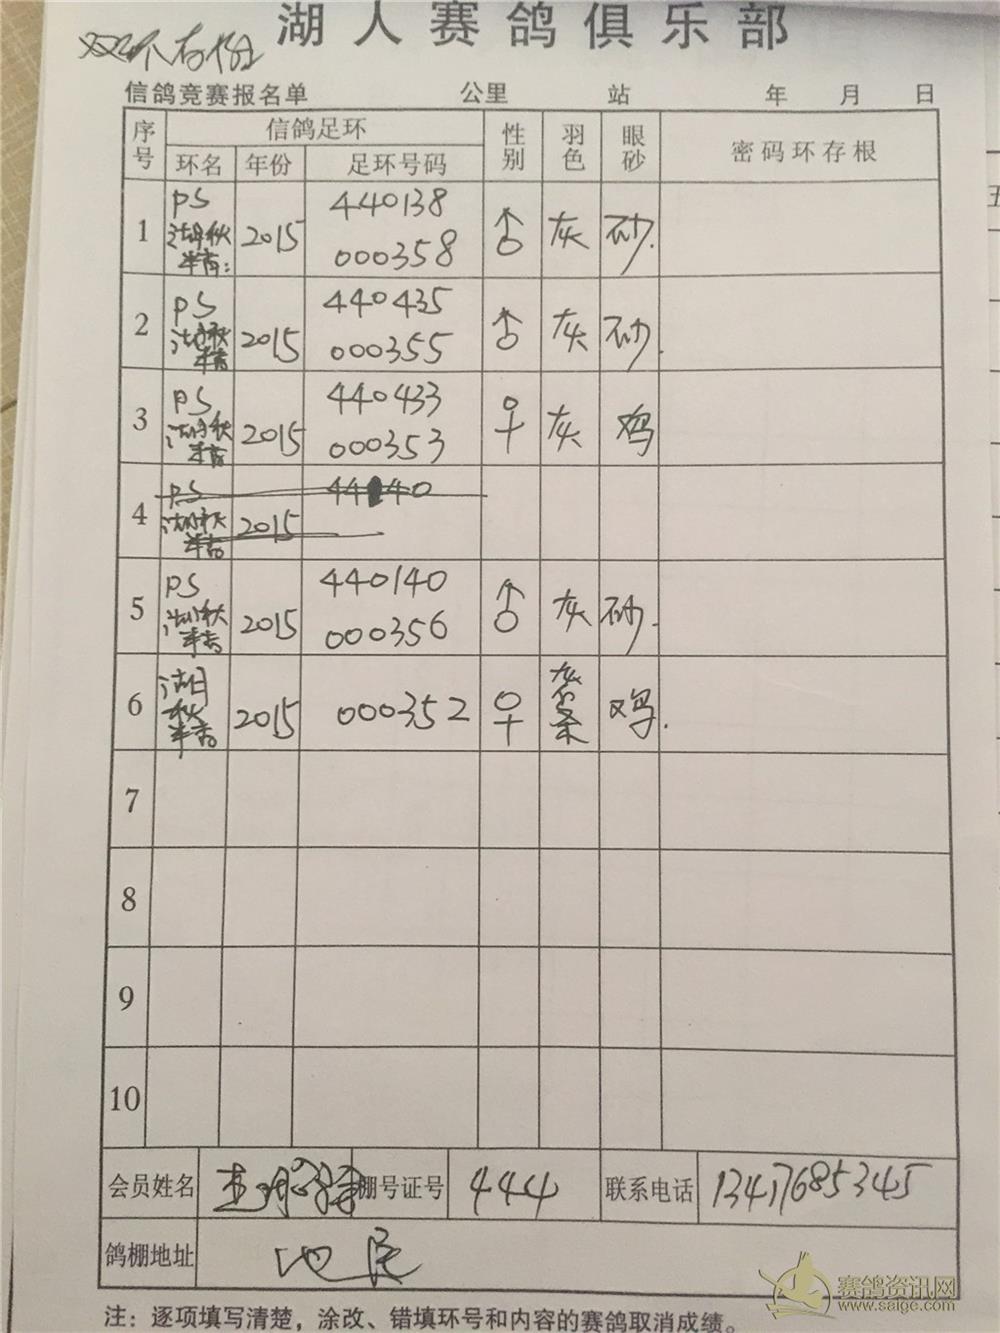 湖人赛鸽俱乐部
双环有份
信鸽竞赛报名单 公里 站 年 月 日
序号 信鸽足环 性别 羽色 眼砂 密码环存根
环名 年份 足环号码
1 PS 湖秋 2015 440138 ♂ 灰 砂.
000358
2 PS 湖秋 2015 440435 ♂ 灰 砂.
000355
3 PS 湖秋 2015 440433 ♀ 灰 鸡
000353
4 PS 湖秋 2015 44 40
5 PS 湖秋 2015 440140 ♂ 灰 砂.
000356
6 湖 秋 2015 000352 ♀ 灰 鸡.
7
8
9
10
会员姓名 棚号证号 444 联系电话 1347685345
鸽棚地址
注：逐项填写清楚，涂改、错填环号和内容的赛鸽取消成绩。
赛鸽资讯网
www.saige.com